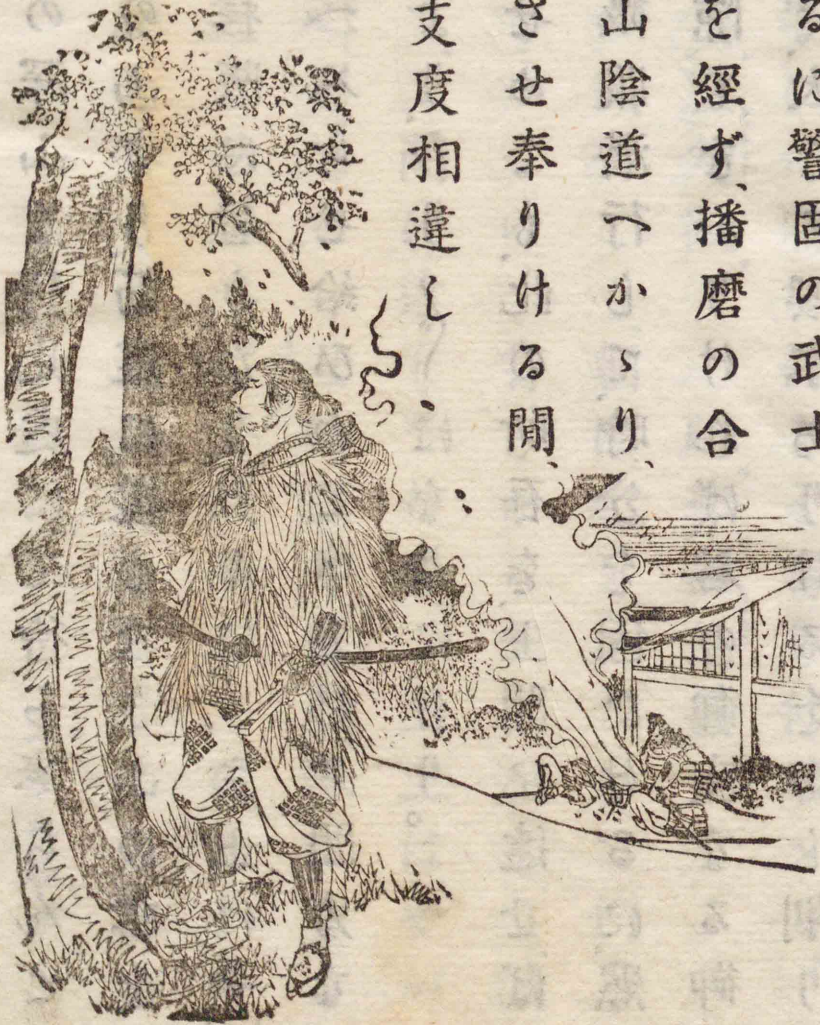 るに警固の武士
を經ず、播磨の合
山陰道へかゝり、
させ奉りける間、
支度相違し